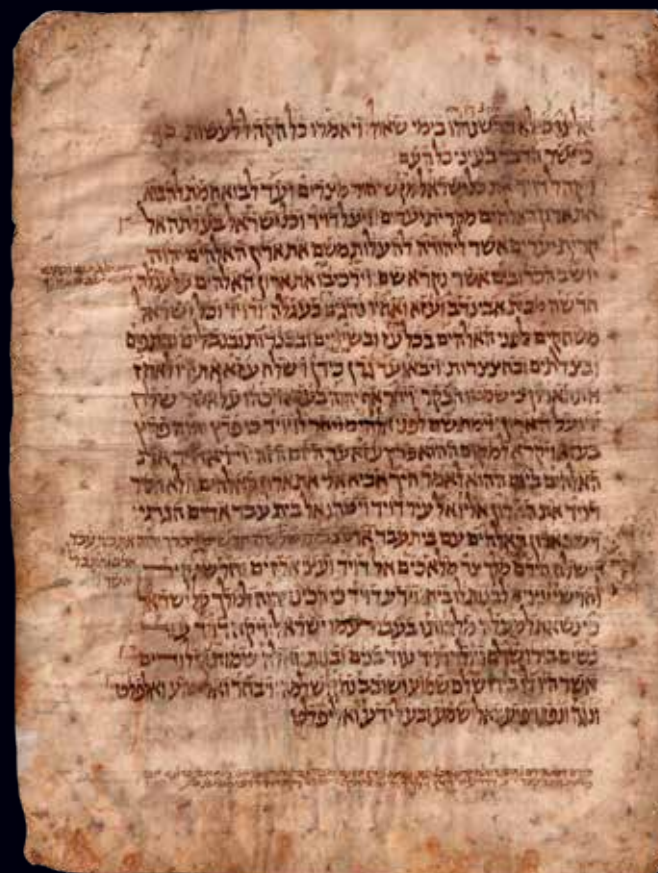 אלינו כי לא דרשנהו בימי שאול ויאמרו כל הקהל לעשות כן
כי ישר הדבר בעיני כל העם
ויקהל דויד את כל ישראל מן שיחור מצרים ועד לבוא חמת להביא
את ארון האלהים מקרית יערים ויעל דויד וכל ישראל בעלתה אל
קרית יערים אשר ליהודה להעלות משם את ארון האלהים יהוה
יושב הכרובים אשר נקרא שם וירכיבו את ארון האלהים על עגלה
חדשה מבית אבינדב ועזא ואחיו נהגים בעגלה ודויד וכל ישראל
משחקים לפני האלהים בכל עז ובשירים ובכנרות ובנבלים ובתפים
ובמצלתים ובחצצרות ויבאו עד גרן כידן וישלח עזא את ידו לאחז
את הארון כי שמטו הבקר ויחר אף יהוה בעזא ויכהו על אשר שלח
ידו על הארון וימת שם לפני אלהים ויחר לדויד כי פרץ יהוה פרץ
בעזא ויקרא למקום ההוא פרץ עזא עד היום הזה ויירא דויד את
האלהים ביום ההוא לאמר היך אביא אלי את ארון האלהים ולא הסיר
דויד את הארון אליו אל עיר דויד ויטהו אל בית עבד אדם הגתי
וישב ארון האלהים עם בית עבד אדם בביתו שלשה חדשים ויברך יהוה את בית עבד
וישלח חירם מלך צר מלאכים אל דויד ועצי ארזים וחרשי קיר
וחרשי עצים לבנות לו בית וידע דויד כי הכינו יהוה למלך על ישראל
כי נשאת למעלה מלכותו בעבור עמו ישראל ויקח דויד עוד
נשים בירושלם ויולד דויד עוד בנים ובנות ואלה שמות הילודים
אשר היו לו בירושלם שמוע ושובב נתן ושלמה ויבחר ואלישוע ואלפלט
ונגה ונפג ויפיע ואלישמע ובעלידע ואליפלט